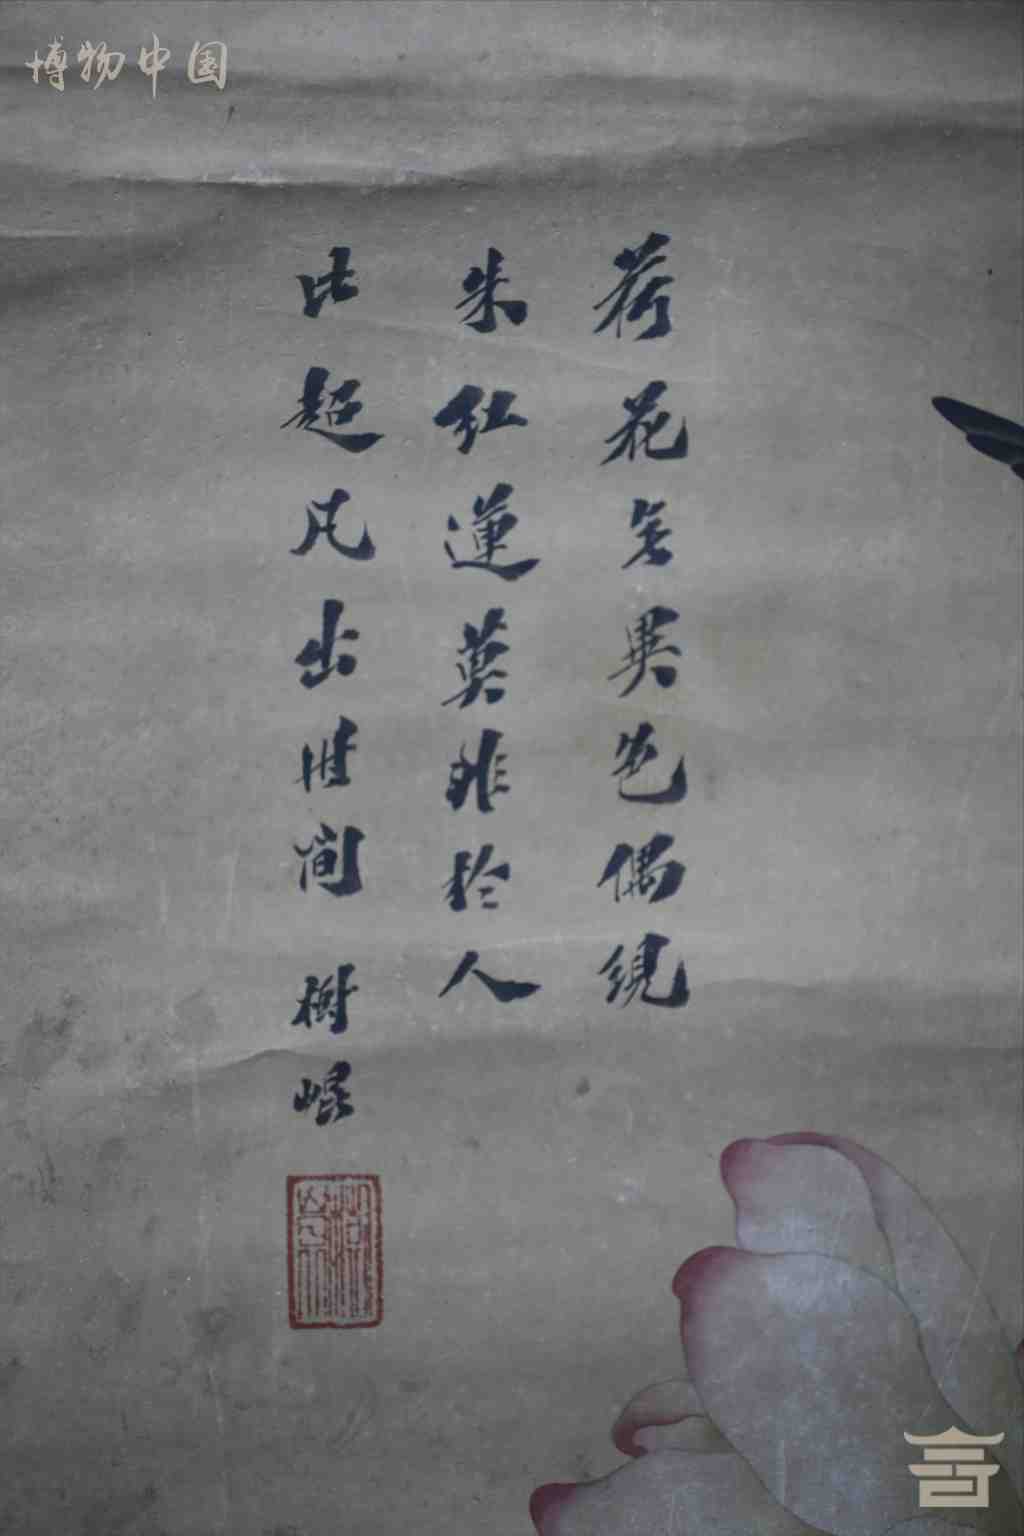 博物中国
荷花無異色偶綻
朱紅蓮莫非於人
比超凡出世間 樹崐